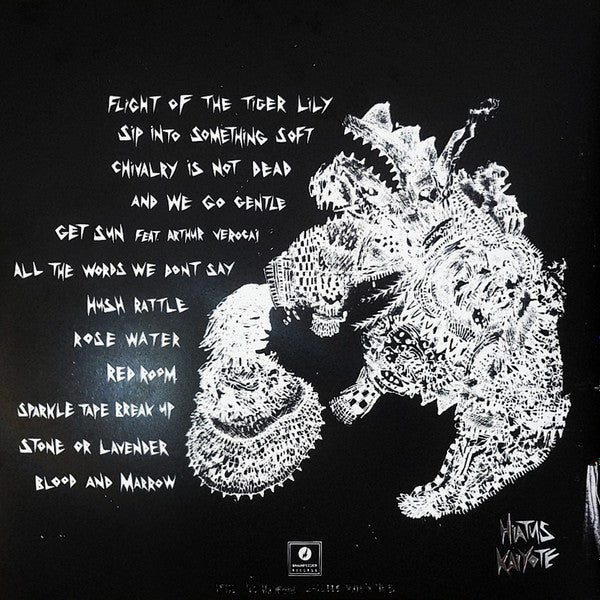 FLIGHT OF THE TIGER LILY
SIP INTO SOMETHING SOFT
CHIVALRY IS NOT DEAD
AND WE GO GENTLE
GET SUN FEAT. ARTHUR VEROCAI
ALL THE WORDS WE DONT SAY
HUSH RATTLE
ROSE WATER
RED ROOM
SPARKLE TAPE BREAK UP
STONE OR LAVENDER
BLOOD AND MARROW
HIATUS
KAIYOTE
BRAINFEEDER
RECORDS